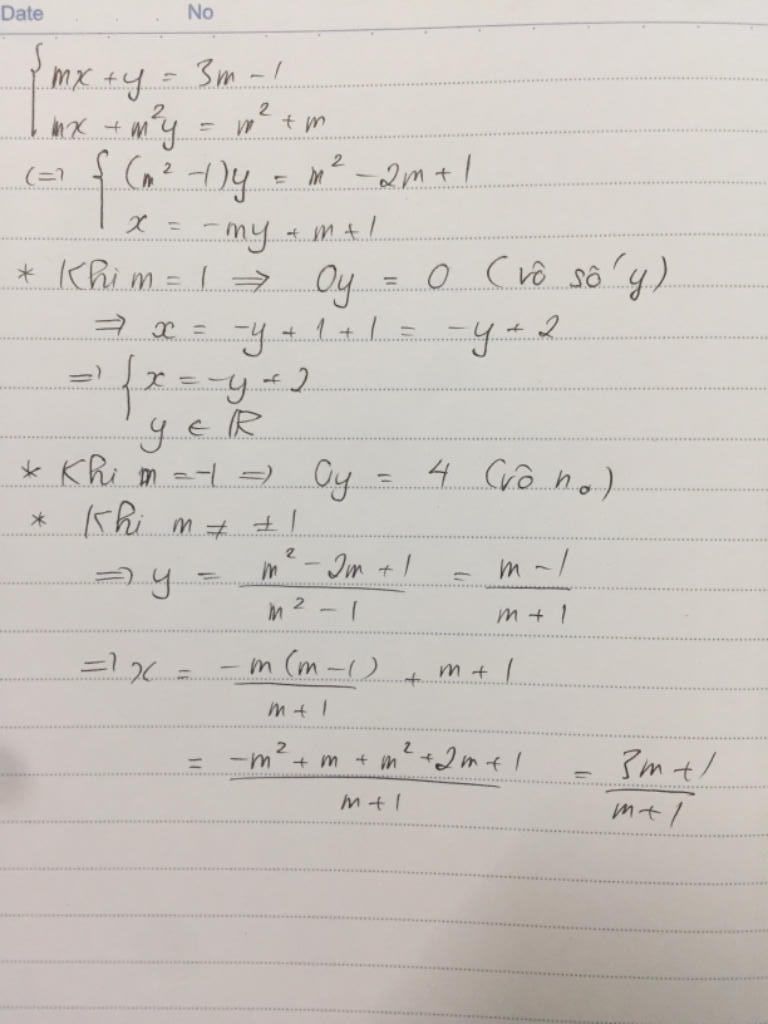 Date No
{ mx + y = 3m - 1
mx + m²y = m² + m
<=> { (m² - 1)y = m² - 2m + 1
x = -my + m + 1
* Khi m = 1 => 0y = 0 (vô số y)
=> x = -y + 1 + 1 = -y + 2
=> { x = -y + 2
y ∈ ℝ
* Khi m = -1 => 0y = 4 (vô no)
* Khi m ≠ ±1
=> y = (m² - 2m + 1)/(m² - 1) = (m - 1)/(m + 1)
=> x = -m(m - 1)/(m + 1) + m + 1
= (-m² + m + m² + 2m + 1)/(m + 1) = (3m + 1)/(m + 1)